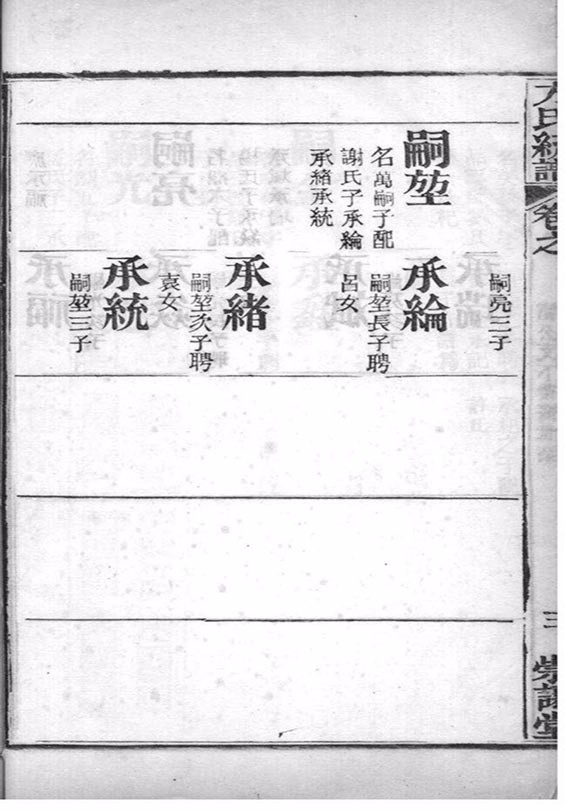 氏統譜
卷之
三
堂
嗣堃
名萬嗣子配
謝氏子承綸
承緒承統
嗣亮三子
承綸
嗣堃長子聘
呂女
承緒
嗣堃次子聘
袁女
承統
嗣堃三子